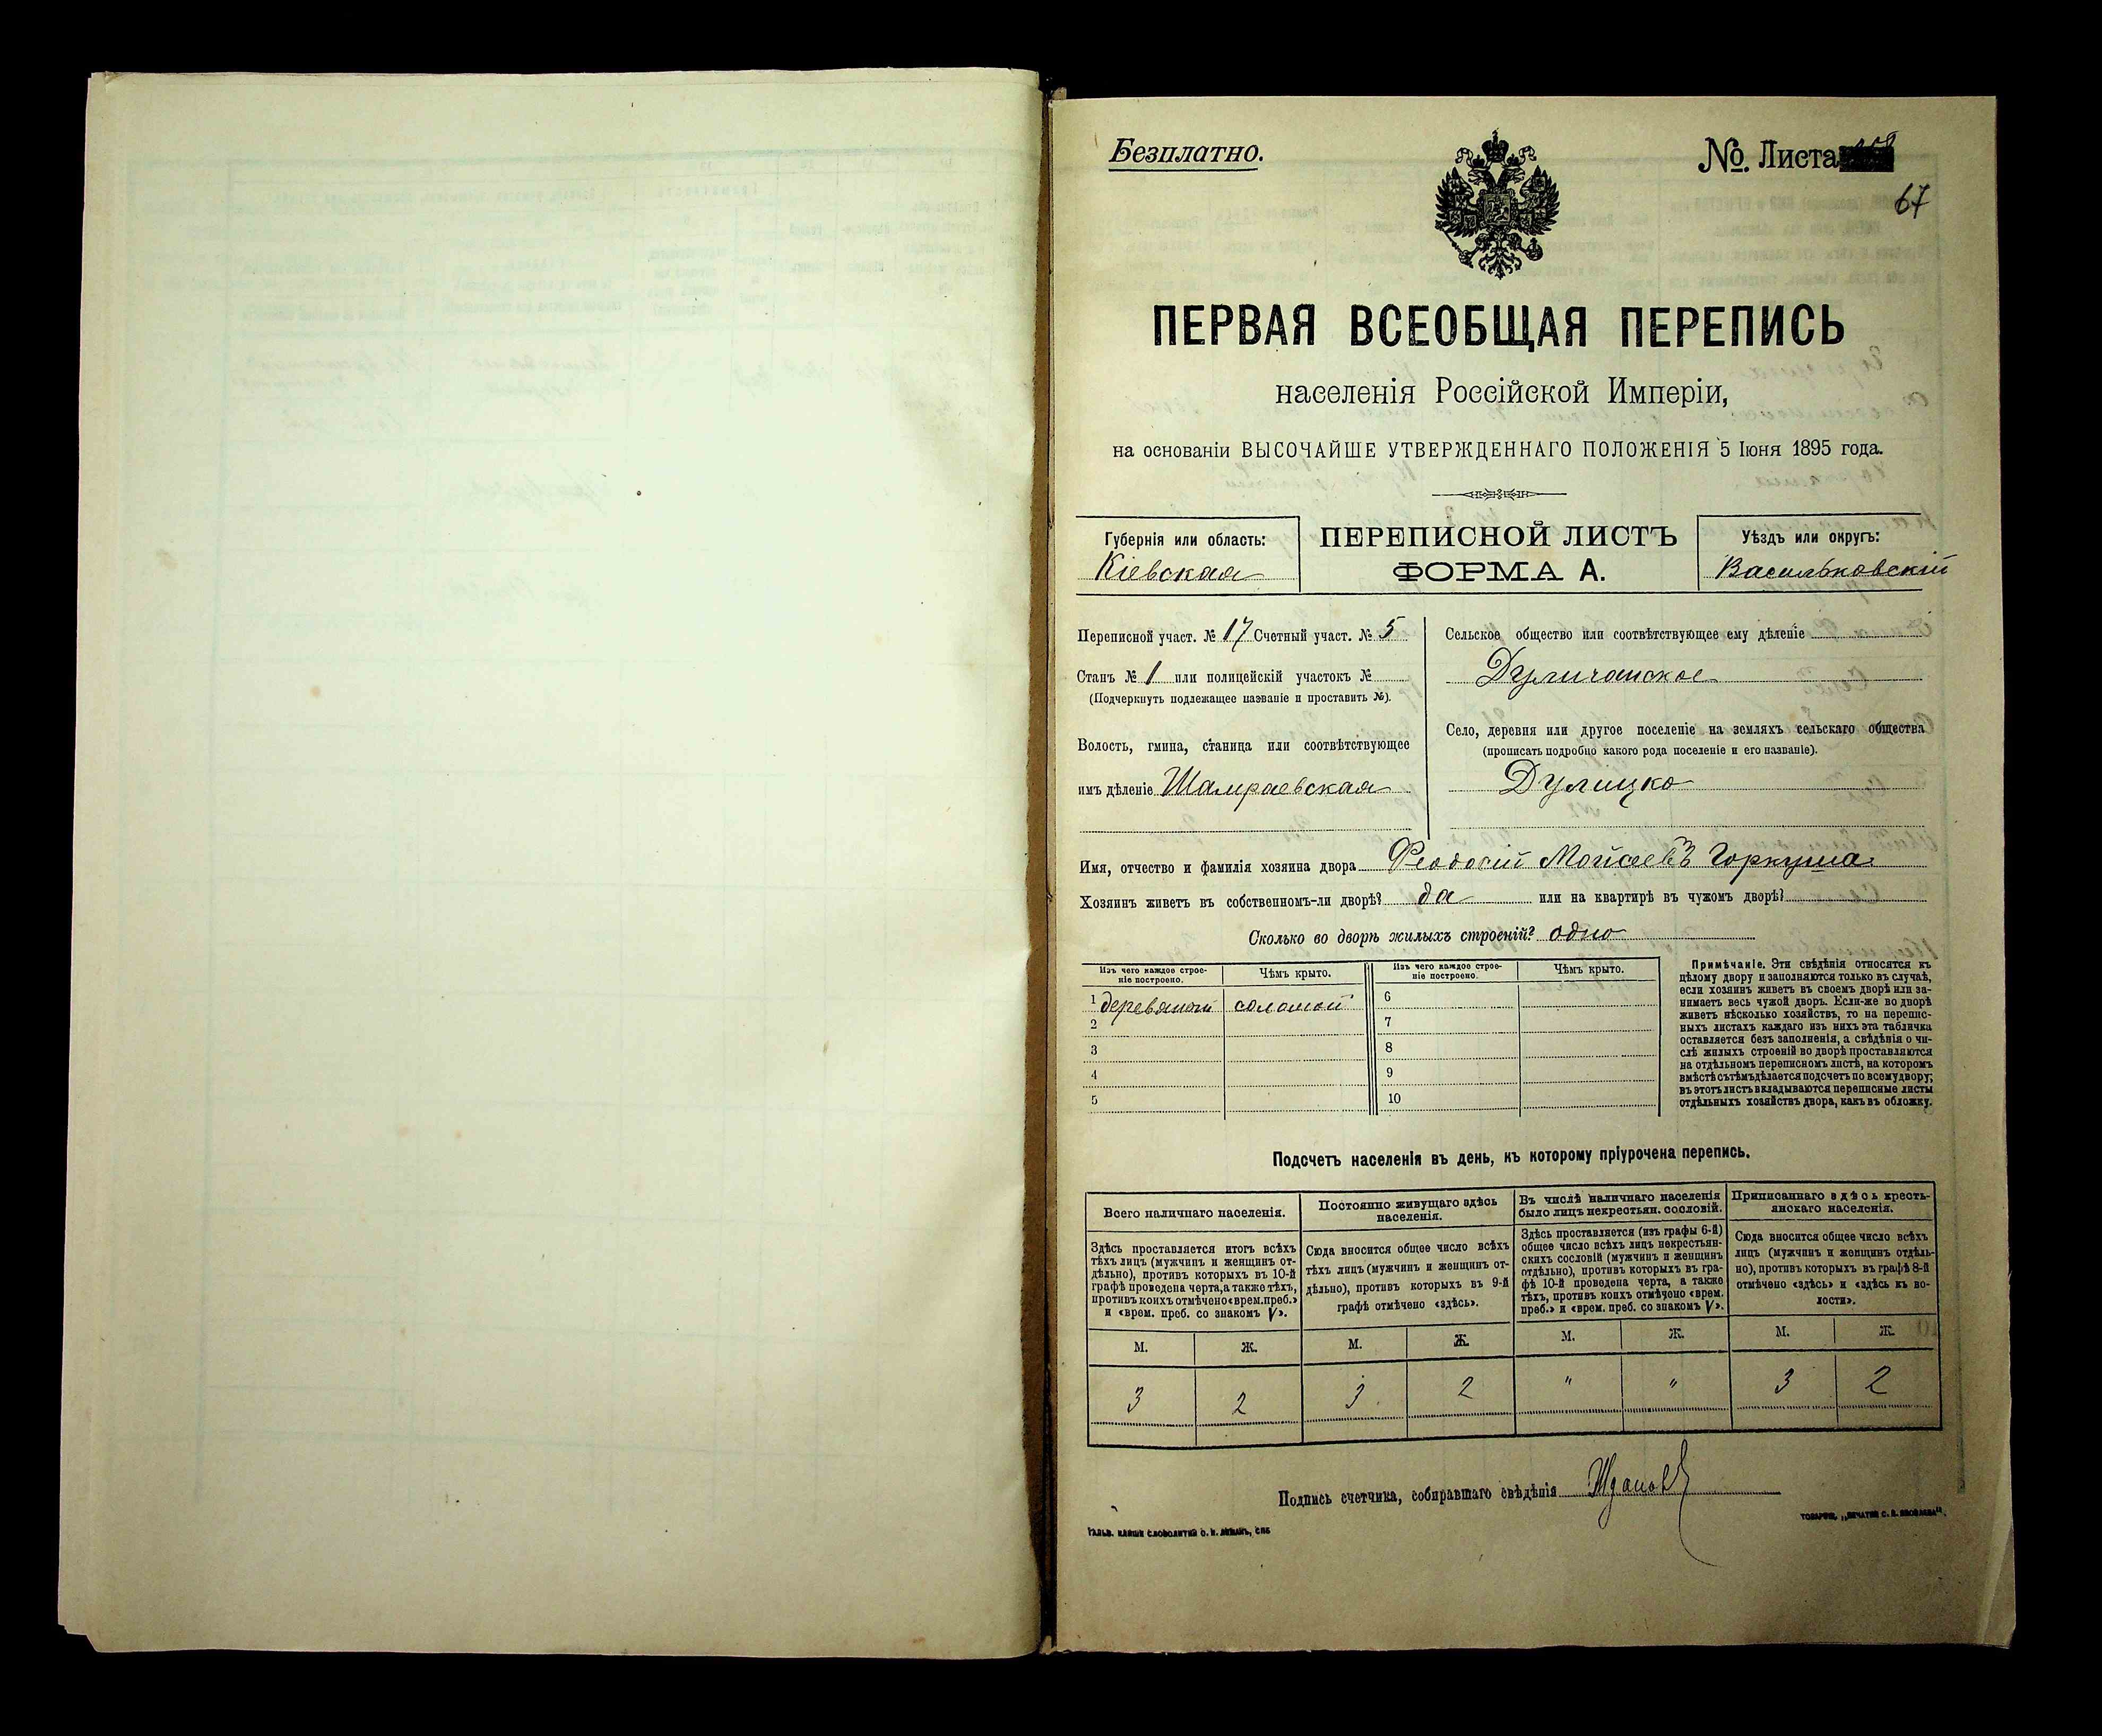 Безплатно.
№. Листа
67
ПЕРВАЯ ВСЕОБЩАЯ ПЕРЕПИСЬ
населенія Россійской Имперіи,
на основаніи ВЫСОЧАЙШЕ УТВЕРЖДЕННАГО ПОЛОЖЕНІЯ 5 Іюня 1895 года.
Губернія или область:
Кіевская
ПЕРЕПИСНОЙ ЛИСТЪ
ФОРМА А.
Уѣздъ или округъ:
Васильковскій
Переписной участ. № 17 Счетный участ. № 5
Станъ № 1 или полицейскій участокъ №
(Подчеркнуть подлежащее названіе и проставить №).
Волость, гмина, станица или соотвѣтствующее
имъ дѣленіе Шамраевская
Сельское общество или соотвѣтствующее ему дѣленіе
Дуличанское
Село, деревня или другое поселеніе на земляхъ сельскаго общества
(прописать подробно какого рода поселеніе и его названіе).
Дулицко
Имя, отчество и фамилія хозяина двора Феодосій Мойсеевъ Горкуша
Хозяинъ живетъ въ собственномъ-ли дворѣ? да или на квартирѣ въ чужомъ дворѣ?
Сколько во дворѣ жилыхъ строеній? одно
Изъ чего каждое строе-
ніе построено.
Чѣмъ крыто.
Изъ чего каждое строе-
ніе построено.
Чѣмъ крыто.
1 соломой 6
2 7
3 8
4 9
5 10
Примѣчаніе. Эти свѣдѣнія относятся къ
цѣлому двору и заполняются только въ случаѣ,
если хозяинъ живетъ въ своемъ дворѣ или за-
нимаетъ весь чужой дворъ. Если-же во дворѣ
живетъ нѣсколько хозяйствъ, то на перепис-
ныхъ листахъ каждаго изъ нихъ эта табличка
оставляется безъ заполненія, а свѣдѣнія о чи-
слѣ жилыхъ строеній во дворѣ проставляются
на отдѣльномъ переписномъ листѣ, на которомъ
вмѣстѣ съ тѣмъ дѣлается подсчетъ по всему двору;
въ этотъ листъ вкладываются переписные листы
отдѣльныхъ хозяйствъ двора, какъ въ обложку.
Подсчетъ населенія въ день, къ которому пріурочена перепись.
Всего наличнаго населенія.
Здѣсь проставляется итогъ всѣхъ
тѣхъ лицъ (мужчинъ и женщинъ от-
дѣльно), противъ которыхъ въ 10-й
графѣ проведена черта, а также тѣхъ,
противъ коихъ отмѣчено «врем. преб.»
и «врем. преб. со знакомъ V».
Постоянно живущаго здѣсь
населенія.
Сюда вносится общее число всѣхъ
тѣхъ лицъ (мужчинъ и женщинъ от-
дѣльно), противъ которыхъ въ 9-й
графѣ отмѣчено «здѣсь».
Въ числѣ наличнаго населенія
было лицъ некрестьян. сословій.
Здѣсь проставляется (изъ графы 6-й)
общее число всѣхъ лицъ некрестьян-
скихъ сословій (мужчинъ и женщинъ
отдѣльно), противъ которыхъ въ гра-
фѣ 10-й проведена черта, а также
тѣхъ, противъ коихъ отмѣчено «врем.
преб.» и «врем. преб. со знакомъ V».
Приписаннаго здѣсь кресть-
янскаго населенія.
Сюда вносится общее число всѣхъ
лицъ (мужчинъ и женщинъ отдѣль-
но), противъ которыхъ въ графѣ 8-й
отмѣчено «здѣсь» и «здѣсь къ во-
лости».
М. Ж. М. Ж. М. Ж. М. Ж.
3 2 3 2 " " 3 2
Подпись счетчика, собиравшаго свѣдѣнія Ждановъ